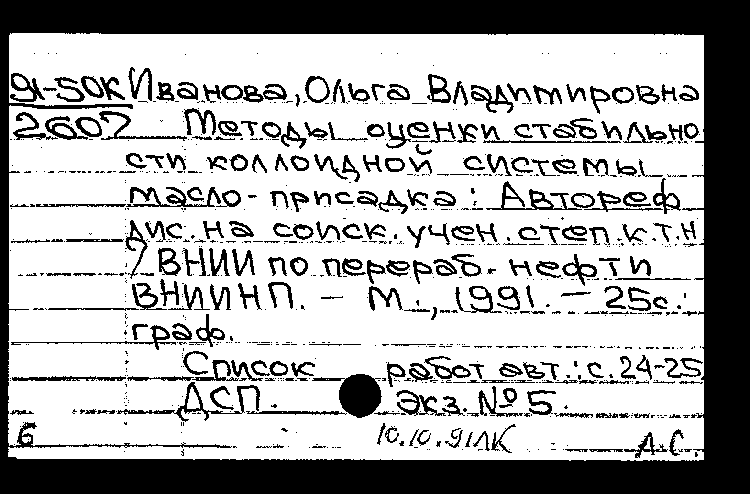 91-50К Иванова, Ольга Владимировна
2607 Методы оценки стабильно
сти коллоидной системы
масло-присадка: Автореф
дис. на соиск. учен. степ. к.т.н
/ ВНИИ по перераб. нефти
ВНИИНП. - М., 1991. - 25с.:
граф.
Список работ авт.: с. 24-25
ДСП. Экз. № 5.
Б 10.10.91ЛК А.С.